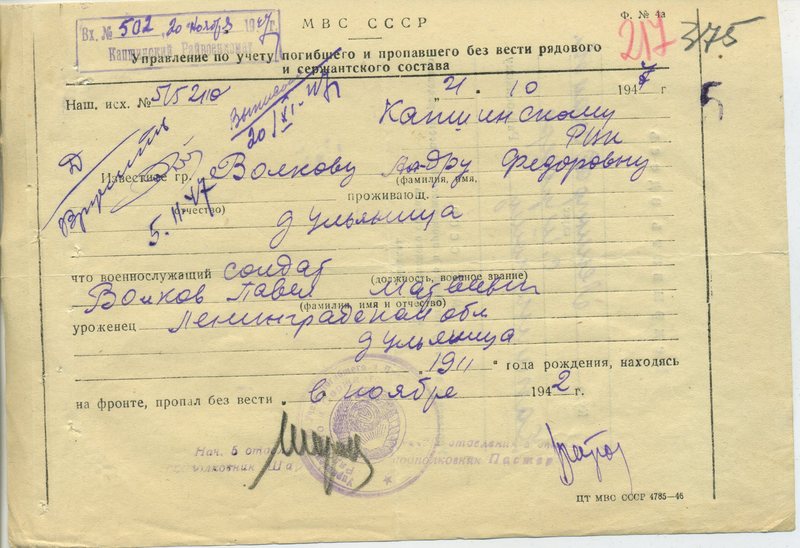 МВС СССР
Ф. № 4а
Вх. № 502 20 ноября 1947
Капшинский Райвоенкомат
217 375
Управление по учету погибшего и пропавшего без вести рядового
и сержантского состава
Наш. исх. № 515210
„21. 10 194 г
20/XI-47
Капшинскому
РВК
Вручить
Известите гр. Волкову Федоровну
(фамилия, имя,
проживающ.
отчество)
5. 11-47
д ульяница
что военнослужащий солдат
(должность, военное звание)
Волков Павел Матвеевич
(фамилия, имя и отчество)
уроженец Ленинградской обл
д ульяница
1911 года рождения, находясь
на фронте, пропал без вести в ноябре 1942 г.
Нач. 5 отдел
отделения
полковник Шар
полковник Пастер
ЦТ МВС СССР 4785—46